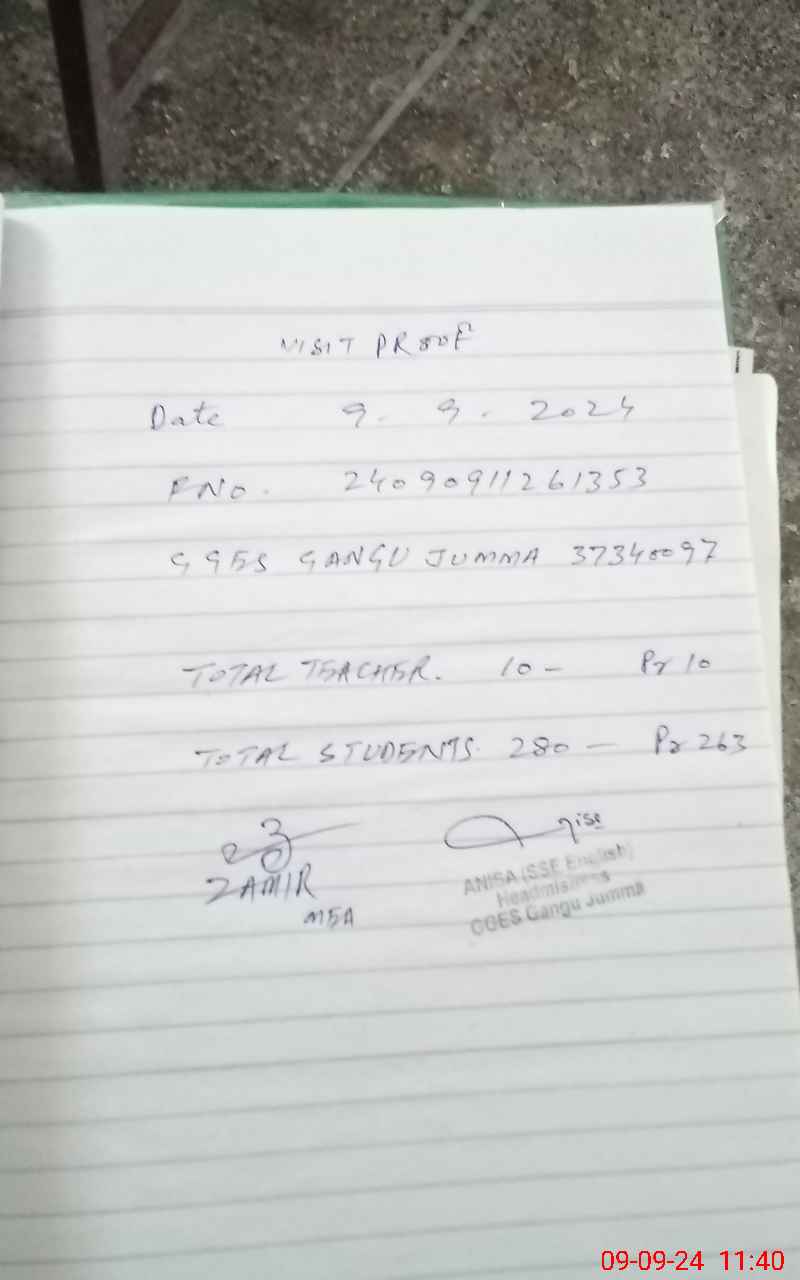 VISIT PROOF
Date 9. 9. 2024
F NO. 24090911261353
GGES GANGU JUMMA 37340097
TOTAL TEACHER. 10 - Pr 10
TOTAL STUDENTS. 280 - Pr 263
ZAMIR
MEA
ANISA (SSE English)
Headmistress
GGES Gangu Jumma
09-09-24 11:40